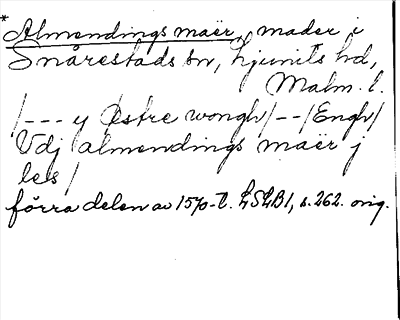 *Almendings maër, mader i
Snårestads sn, Ljunits hd,
Malm. l.
/--- y Østre wongh/--/Engh/
Vdj almendings maër j
les/
förra delen av 1570-t. LSLB1, s. 262. orig.